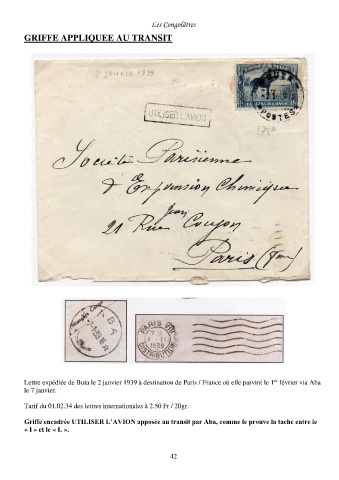 Les Congolâtres
GRIFFE APPLIQUEE AU TRANSIT
2 JANVIER 1939
UTILISER L'AVION
POSTES
1750
Société Parisienne
d'Expansion Chimique
21 Rue Jean Goujon
Paris
ABA
PARIS VIII
1939
DISTRIBUTION
Lettre expédiée de Buta le 2 janvier 1939 à destination de Paris / France où elle parvint le 1er février via Aba
le 7 janvier.
Tarif du 01.02.34 des lettres internationales à 2.50 Fr / 20gr.
Griffe encadrée UTILISER L'AVION apposée au transit par Aba, comme le prouve la tache entre le
« I » et le « L ».
42